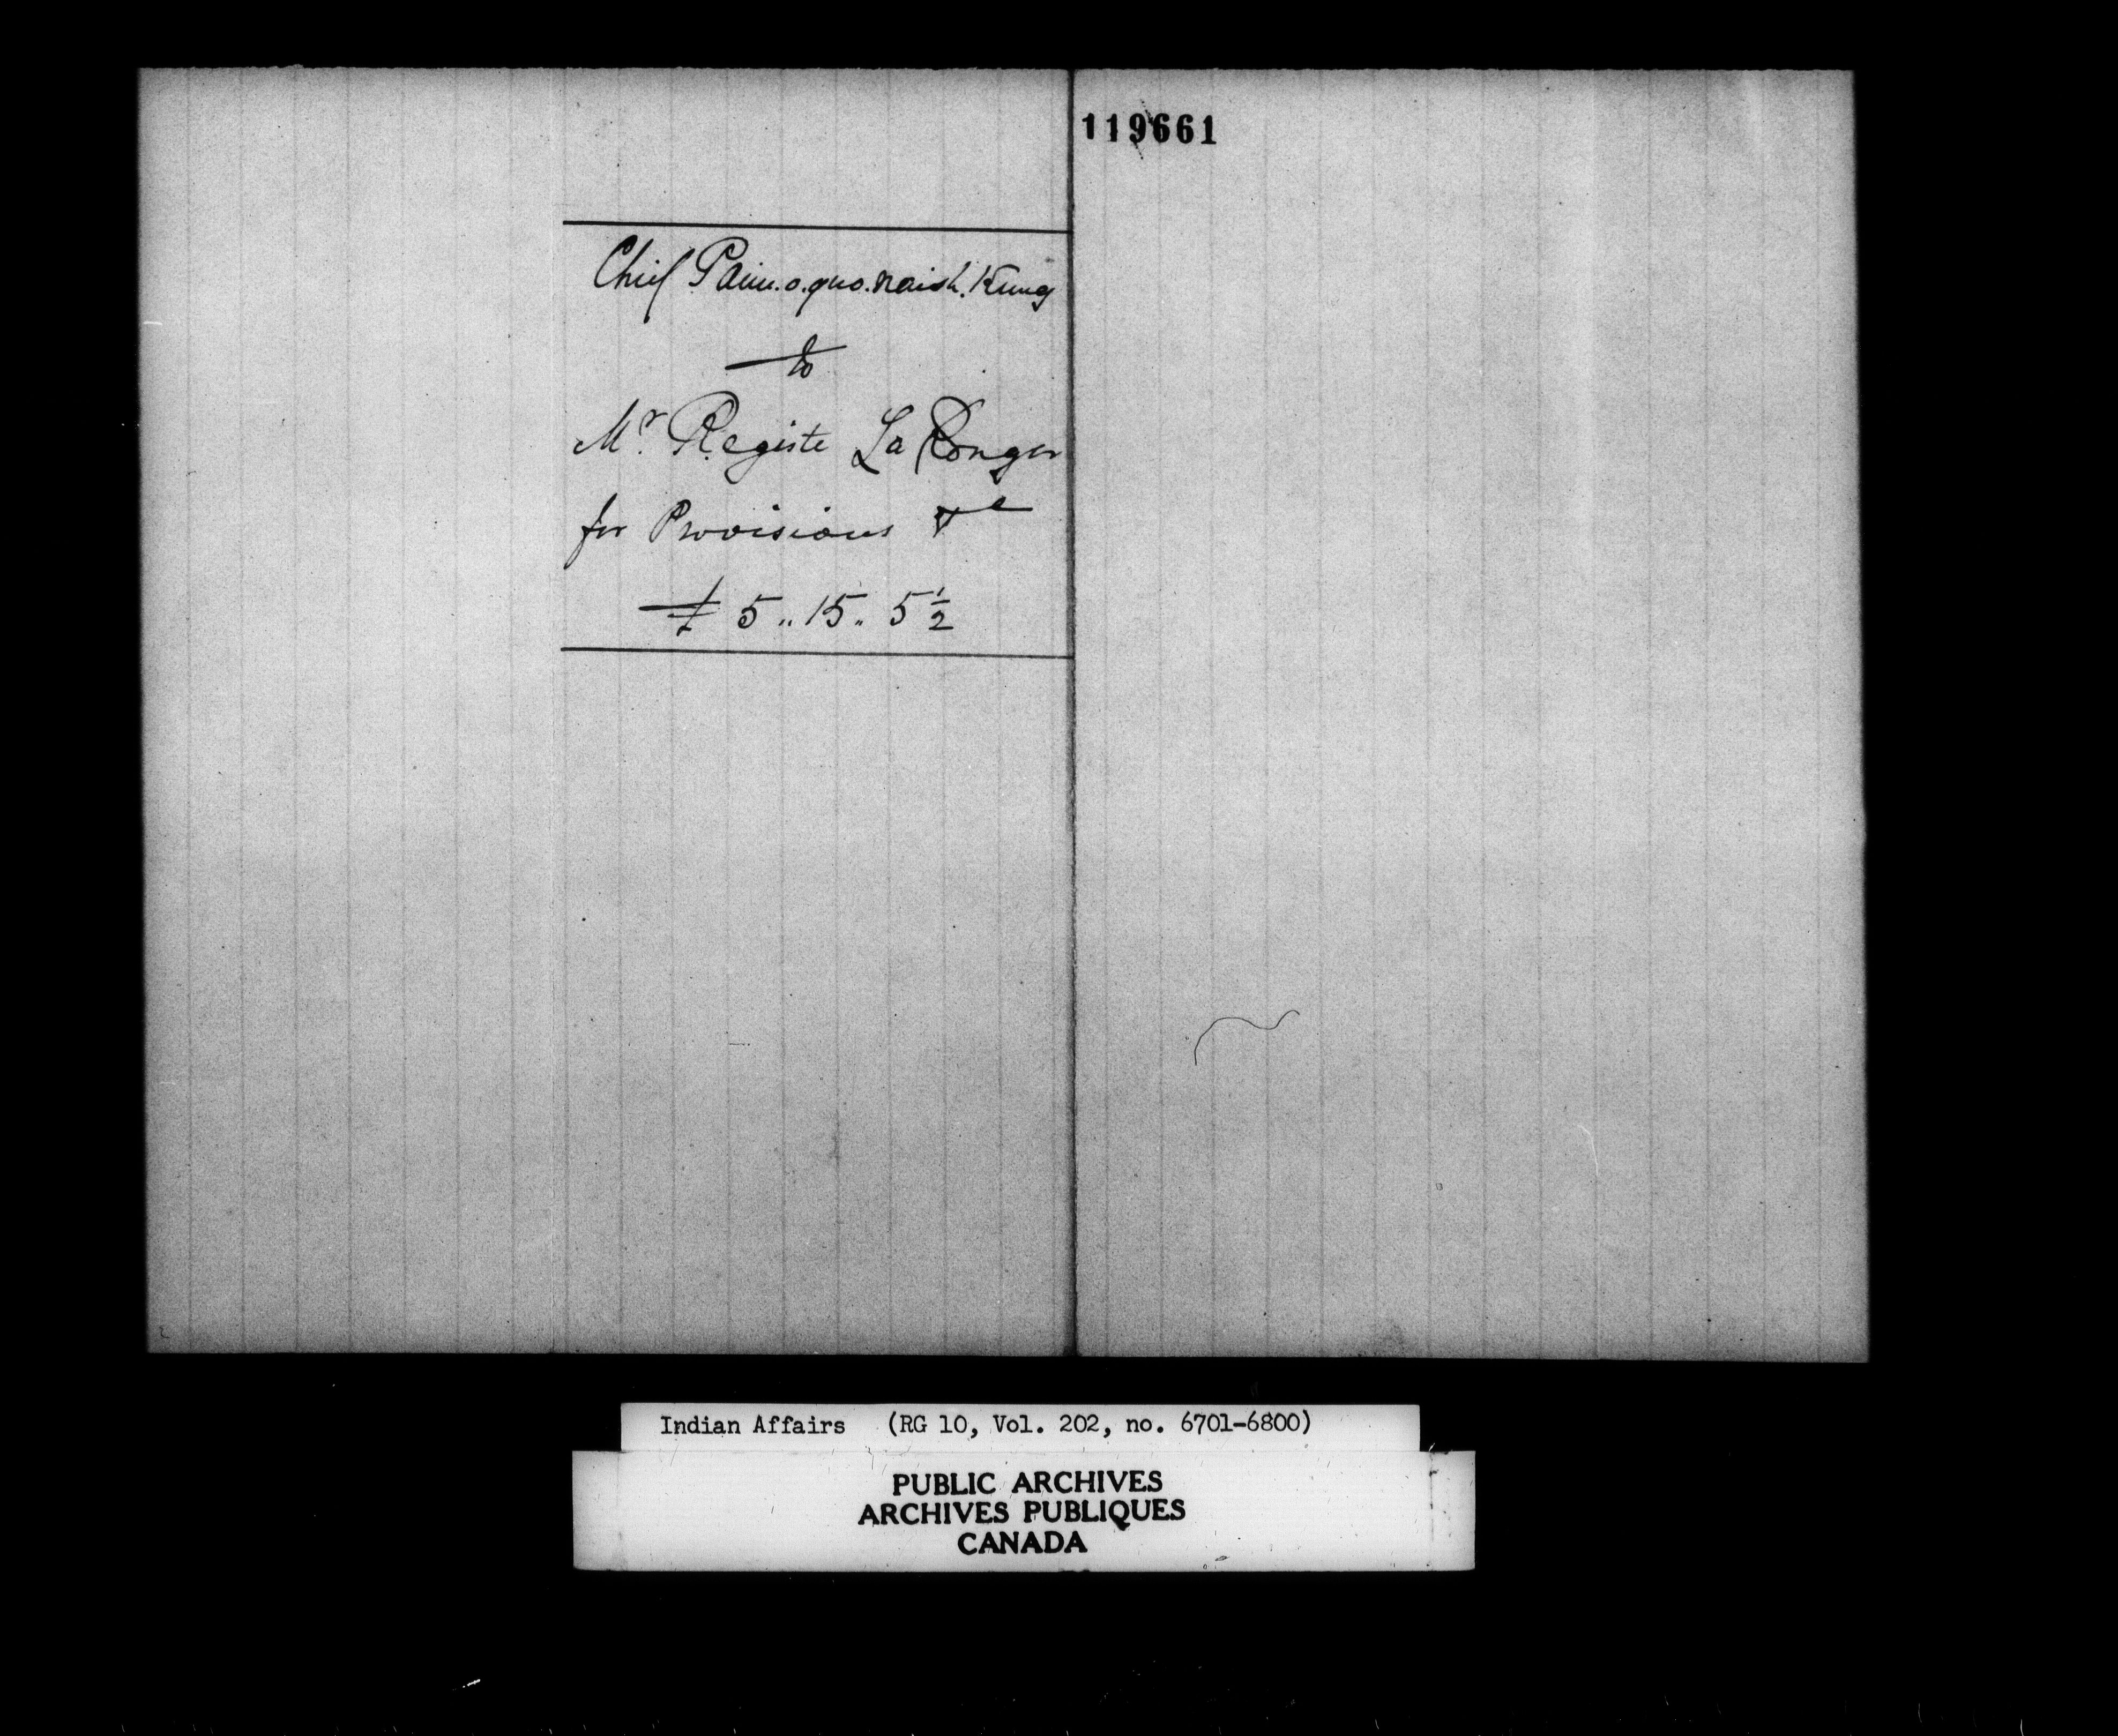 119661
Chief Paim.o.quo.naish.Kung
to
Mr. Registe La Ronger
for Provisions &c
£ 5 .. 15 .. 5 ½
Indian Affairs (RG 10, Vol. 202, no. 6701-6800)
PUBLIC ARCHIVES
ARCHIVES PUBLIQUES
CANADA